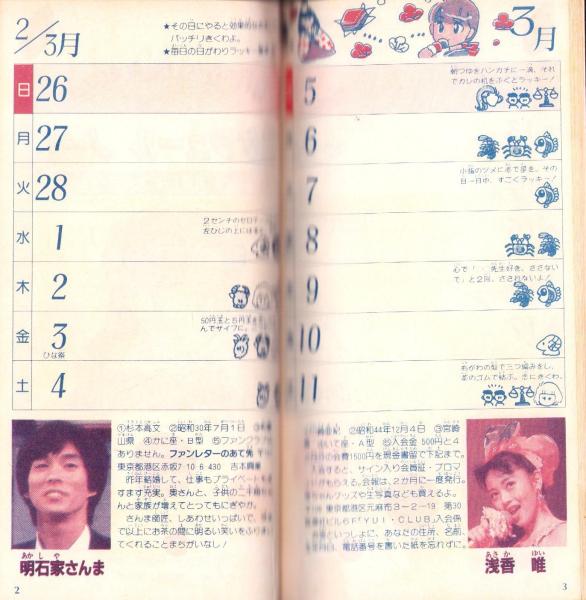 2/3月
★その日にやると効果的な
バッチリきくわよ。
★毎日の日がわりラッキー
日 26
月 27
火 28
水 1
2センチのゼロテ
左ひじの上にはる
木 2
金 3
ひな祭
50円玉と5円玉を
んでサイフに。
土 4
①杉本高文 ②昭和30年7月1日 ③
山県 ④かに座・B型 ⑤ファンクラブ
ありません。ファンレターのあて先 〒
東京都港区赤坂7-10-6-430 吉本興業
昨年結婚して、仕事もプライベートも
すます充実。奥さんと、子供の二千翔
んと家族が増えてとってもにぎやか。
さんま師匠、しあわせいっぱいで、
て以上にお茶の間に明るい笑いをふりまい
てくれることまちがいなし!
あかしや
明石家さんま
2
3月
5
朝つゆをハンカチに一滴、それ
でカレの机をふくとラッキー!
6
7
小指のツメに赤で星を。その
日一日中、すごくラッキー!
8
9
心で「 先生好き、ささない
で」と2回。さされないよ!
10
11
右がわの髪で三つ編みをし、
茶のゴムで結ぶ。恋にきくわ。
②昭和44年12月4日 ③宮崎
④いて座・A型 ⑤入会金500円と4
の会費1500円を現金書留で下記まで。
入会すると、サイン入り会員証・ブロマ
がもらえる。会報は2カ月に一度発行。
ちゃんグッズや生写真なども買えるよ。
東京都港区元麻布3-2-19 第30
ビル6F「YUI・CLUB」入会係
といっしょに、あなたの住所、名前、
月日、電話番号を書いた紙を忘れずに。
あさか ゆい
浅香 唯
3